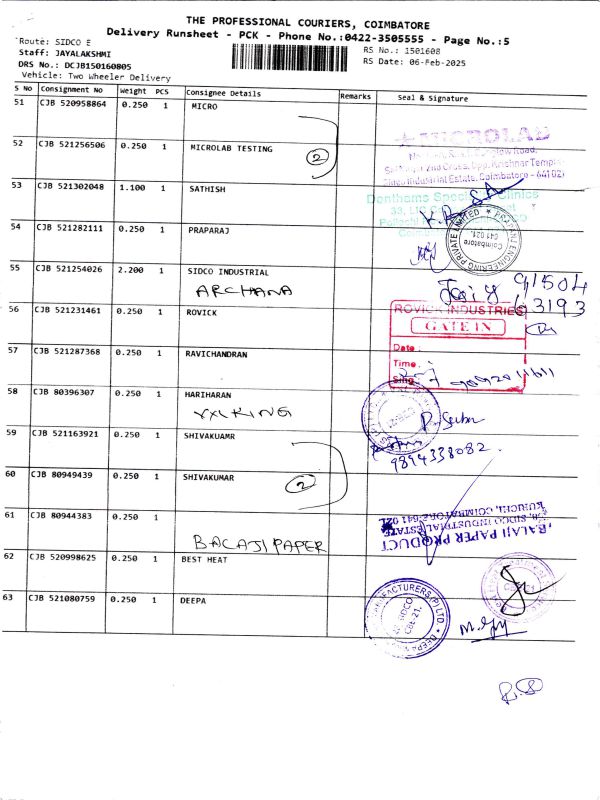 THE PROFESSIONAL COURIERS, COIMBATORE
Delivery Runsheet - PCK - Phone No.:0422-3505555 - Page No.:5
Route: SIDCO E
Staff: JAYALAKSHMI
DRS No.: DCJB150160805
Vehicle: Two Wheeler Delivery
RS No.: 1501608
RS Date: 06-Feb-2025
S No Consignment No Weight PCS Consignee Details Remarks Seal & Signature
51 CJB 520958864 0.250 1 MICRO
52 CJB 521256506 0.250 1 MICROLAB TESTING
2
MICROLAB
Sidco Industrial Estate, Coimbatore - 641 021
53 CJB 521302048 1.100 1 SATHISH
54 CJB 521282111 0.250 1 PRAPARAJ
PRIVATE LIMITED
Coimbatore
641 021.
55 CJB 521254026 2.200 1 SIDCO INDUSTRIAL
ARCHANA
91504
63193
56 CJB 521231461 0.250 1 ROVICK
ROVICK INDUSTRIES
GATE IN
Date :
Time :
Sing :
57 CJB 521287368 0.250 1 RAVICHANDRAN
58 CJB 80396307 0.250 1 HARIHARAN
59 CJB 521163921 0.250 1 SHIVAKUAMR
9894338082.
60 CJB 80949439 0.250 1 SHIVAKUMAR
2
61 CJB 80944383 0.250 1
BALAJI PAPER
BALAJI PAPER PRODUCT
SIDCO INDUSTRIAL ESTATE
KURICHI, COIMBATORE-641 021.
62 CJB 520998625 0.250 1 BEST HEAT
63 CJB 521080759 0.250 1 DEEPA
SIDCO
CBE-21.
R.S